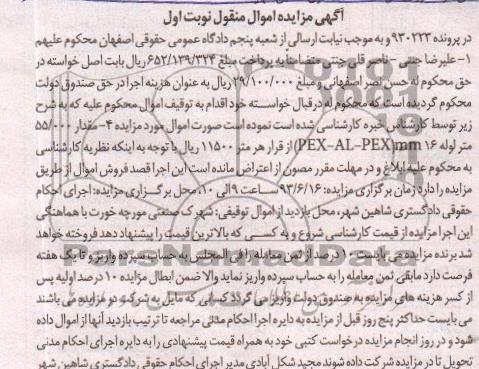 آگهی مزایده اموال منقول نوبت اول
در پرونده ۹۳۰۲۲۳ و به موجب نیابت ارسالی از شعبه پنجم دادگاه عمومی حقوقی اصفهان محکوم علیهم
۱- علیرضا جنتی - ناصر قلی جنتی متضامناً به پرداخت مبلغ ۶۵۲/۱۳۹/۳۲۴ ریال بابت اصل خواسته در
حق محکوم له حسن نصر اصفهانی و مبلغ ۲۹/۱۰۰/۰۰۰ ریال به عنوان هزینه اجرا در حق صندوق دولت
محکوم گردیده است که محکوم له در قبال خواسته خود اقدام به توقیف اموال محکوم علیه که به شرح
زیر توسط کارشناس خبره کارشناسی شده است نموده است صورت اموال مورد مزایده ۴- مقدار ۵۵/۰۰۰
متر لوله ۱۶ mm(PEX-AL-PEX) از قرار هر متر ۱۱۵۰۰ ریال با توجه به اینکه نظریه کارشناسی
به محکوم علیه ابلاغ و در مهلت مقرر مصون از اعتراض مانده است این اجرا قصد فروش اموال از طریق
مزایده را دارد زمان برگزاری مزایده: ۹۳/۶/۱۶ ساعت ۹ الی ۱۰، محل برگزاری مزایده: اجرای احکام
حقوقی دادگستری شاهین شهر، محل بازدید از اموال توقیفی: شهرک صنعتی مورچه خورت با هماهنگی
این اجرا مزایده از قیمت کارشناسی شروع و به کسی که بالاترین قیمت را پیشنهاد دهد فروخته خواهد
شد برنده مزایده می بایست ۱۰ درصد از ثمن معامله را فی المجلس به حساب سپرده واریز و تا یک هفته
فرصت دارد مابقی ثمن معامله را به حساب سپرده واریز نماید والا ضمن ابطال مزایده ۱۰ درصد اولیه پس
از کسر هزینه های مزایده به صندوق دولت واریز می گردد کسانی که مایل به شرکت در مزایده می باشند
می بایست حداکثر پنج روز قبل از مزایده به دایره اجرا احکام مدنی مراجعه تا ترتیب بازدید آنها از اموال داده
شود و در روز انجام مزایده درخواست کتبی خود به همراه قیمت پیشنهادی را به دایره اجرای احکام مدنی
تحویل تا در مزایده شرکت داده شوند مجید شکل آبادی مدیر اجرای احکام حقوقی دادگستری شاهین شهر